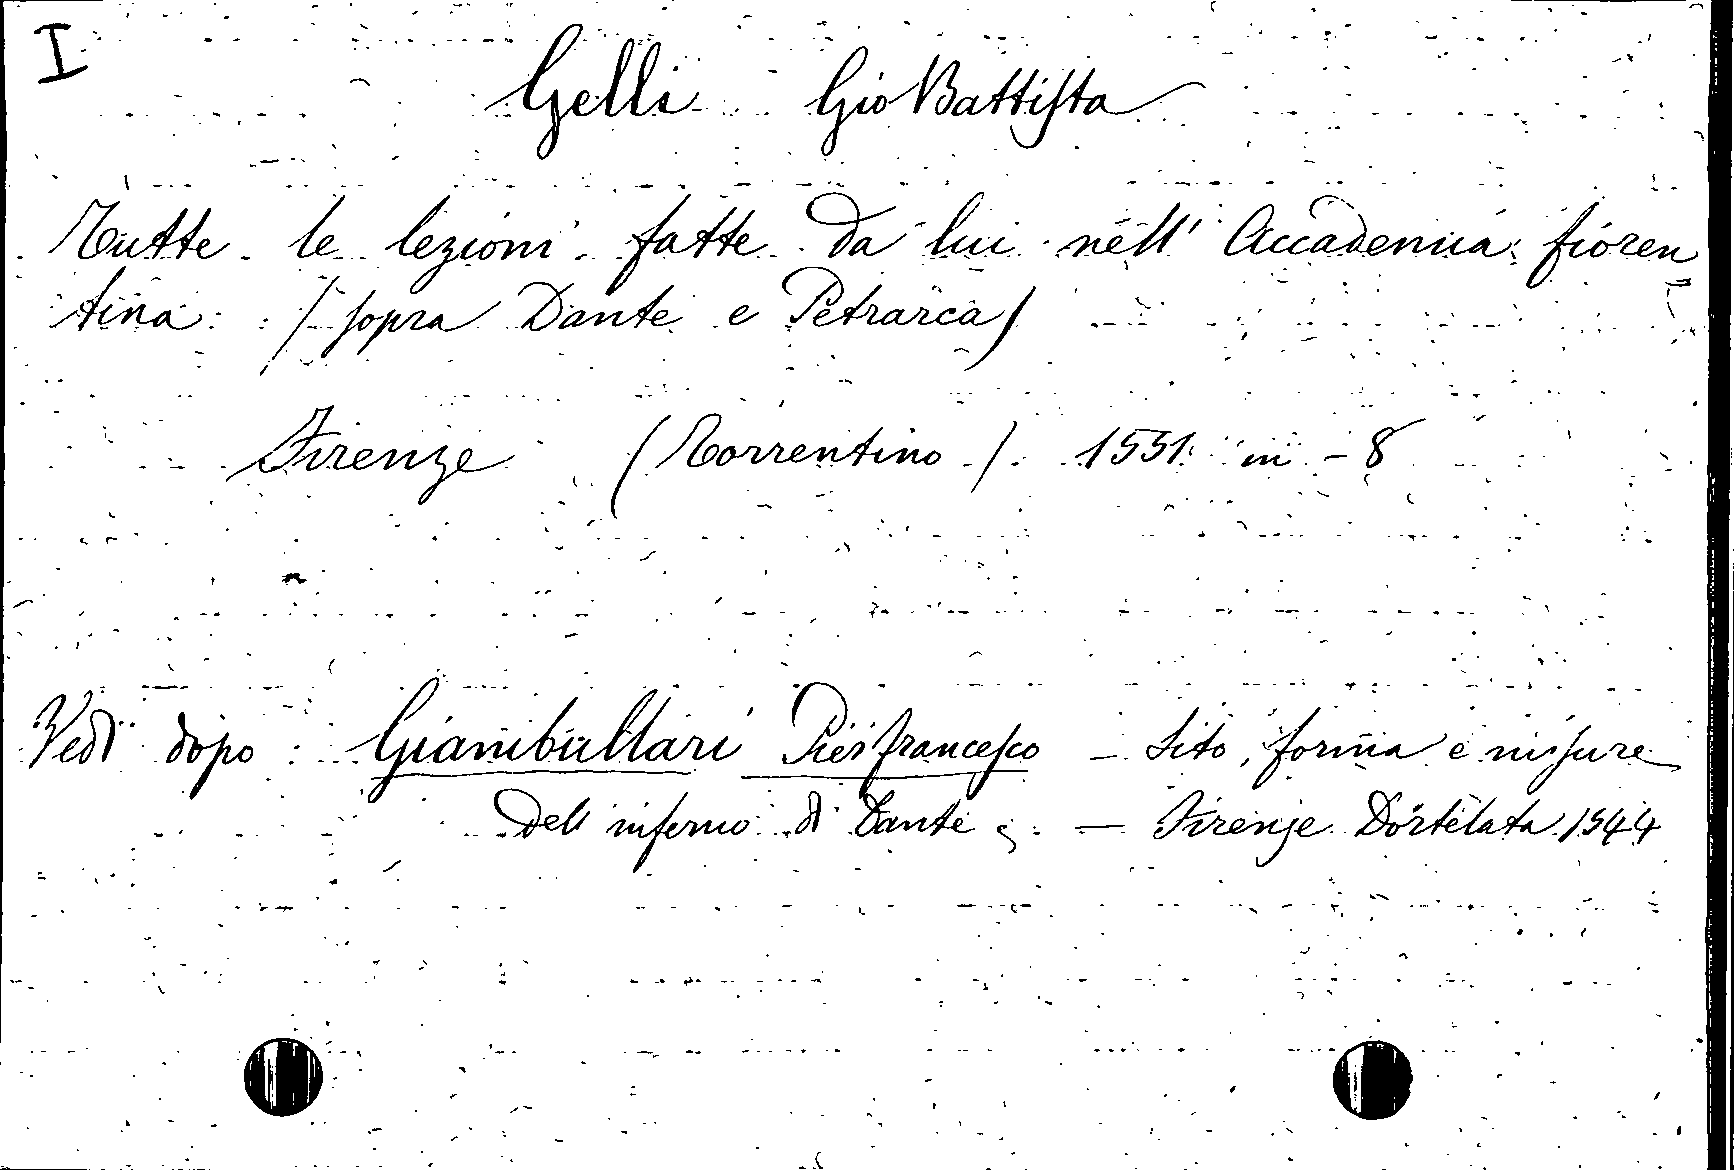 I
Gelli Gio Battista
Tutte le lezioni fatte da lui nell' Accademia fioren
tina. (sopra Dante e Petrarca)
Firenze (Torrentino) 1551 in - 8
Vedi dopo : Giambullari Pierfrancesco - Sito, forma e misure
dell inferno di Dante ; - Firenze Dortelata 1544